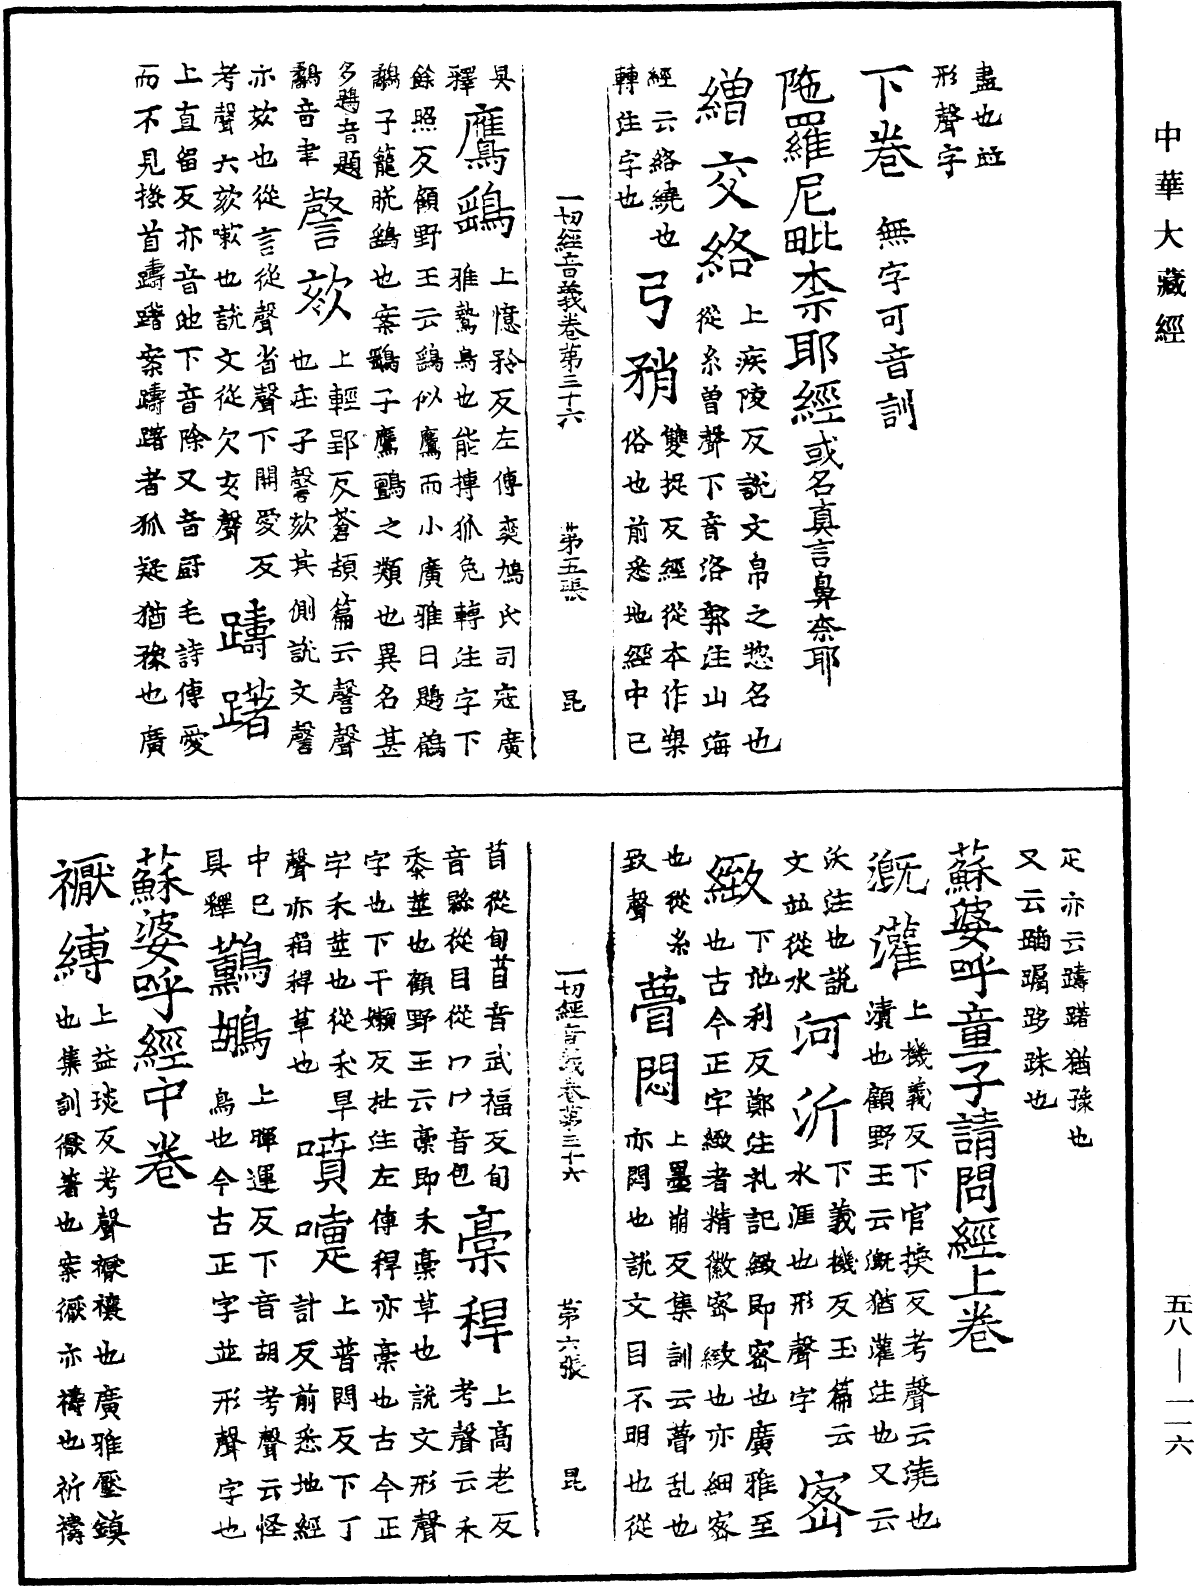 中華大藏經
盡也並
形聲字
下卷　無字可音訓
陁羅尼毗柰耶經或名真言鼻奈耶
繒交絡上疾陵反說文帛之惣名也
從糸曾聲下音洛郭注山海
經云絡繞也弓矟雙捉反經從本作槊
轉注字也俗也前悉地經中已
一切經音義卷第三十六　第五張　昆
具釋鷹鷂上憶矜反左傳爽鳩氏司寇廣
雅鷙鳥也能摶狐兔轉注字下
餘照反顧野王云鷂似鷹而小廣雅曰鶗鵳
鷸子籠脫鷂也案鷂子鷹鸇之類也異名甚
多鶗音題
鷸音聿謦欬上輕郢反蒼頡篇云謦聲
也莊子謦欬其側說文謦
亦欬也從言從聲省聲下開愛反
考聲大欬嗽也說文從欠亥聲躊躇
上直留反亦音池下音除又音廚毛詩傳愛
而不見搔首躊躇案躊躇者狐疑猶豫也廣
疋亦云躊躇猶豫也
又云蹢躅跢跦也
蘇婆呼童子請問經上卷
溉灌上機義反下官換反考聲云澆也
漬也顧野王云溉猶灌注也又云
沃注也說
文並從水河沂下義機反玉篇云
水涯也形聲字密
緻下池利反鄭注礼記緻即密也廣雅至
也古今正字緻者精徽密緻也亦細密
也從糸
致聲瞢悶上墨崩反集訓云瞢乱也
亦悶也說文目不明也從
苜從旬苜音武福反旬
音縣從目從勹勹音包稾稈上高老反
考聲云禾
黍莖也顧野王云稾即禾稾草也說文形聲
字也下干嬾反杜注左傳稈亦稾也古今正
字禾莖也從禾旱
聲亦稻稈草也噴嚏上普悶反下丁
計反前悉地經
中已
具釋鸛鶘上暉運反下音胡考聲云怪
鳥也今古正字並形聲字也
蘇婆呼經中卷
禳縛上益琰反考聲禳禳也廣雅壓鎮
也集訓禳著也案禳亦禱也祈禱
一切經音義卷第三十六　第六張　昆
五八—一一六